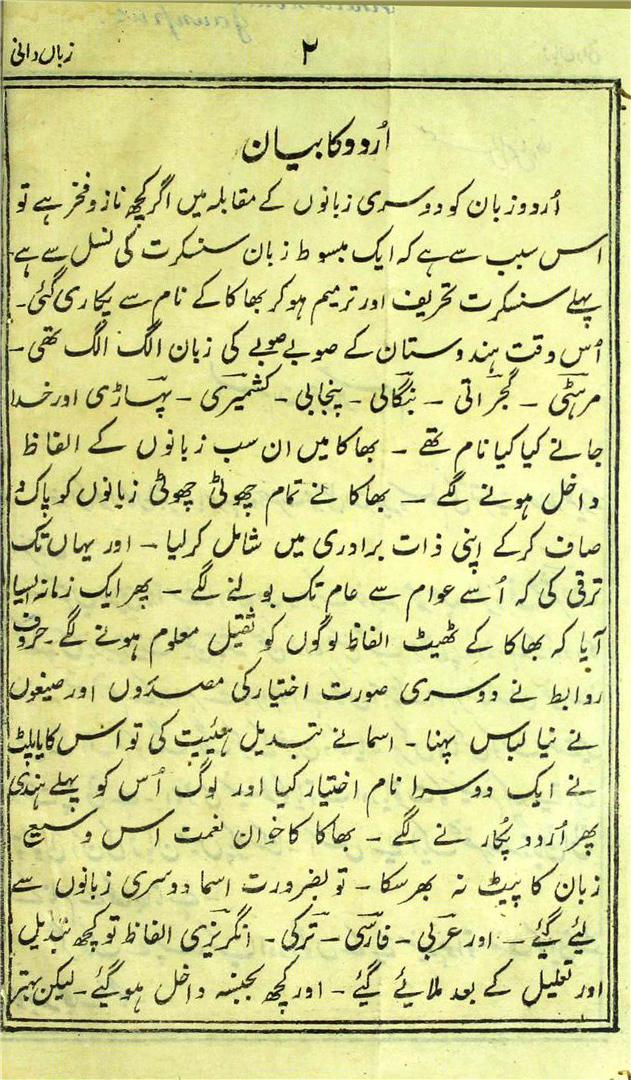 زباں دانی
۲
اُردو کا بیان
اُردو زبان کو دوسری زبانوں کے مقابلہ میں اگر کچھ ناز و فخر ہے تو
اس سبب سے ہے کہ ایک مبسوط زبان سنسکرت کی نسل سے ہے۔
پہلے سنسکرت تحریف اور ترمیم ہو کر بھاکا کے نام سے پکاری گئی۔
اُس وقت ہندوستان کے صوبے صوبے کی زبان الگ الگ تھی۔
مرہٹی ۔ گجراتی ۔ بنگالی ۔ پنجابی ۔ کشمیری ۔ پہاڑی اور خدا
جانے کیا کیا نام تھے ۔ بھاکا میں ان سب زبانوں کے الفاظ
داخل ہونے لگے ۔ بھاکا نے تمام چھوٹی چھوٹی زبانوں کو پاک و
صاف کر کے اپنی ذات برادری میں شامل کر لیا ۔ اور یہاں تک
ترقی کی کہ اُسے عوام سے عام تک بولنے لگے ۔ پھر ایک زمانہ ایسا
آیا کہ بھاکا کے ٹھیٹ الفاظ لوگوں کو ثقیل معلوم ہونے لگے۔ حروف
روابط نے دوسری صورت اختیار کی مصدروں اور صیغوں
نے نیا لباس پہنا ۔ اسما نے تبدیل ہئیت کی تو اس کایا پلٹ
نے ایک دوسرا نام اختیار کیا اور لوگ اُس کو پہلے ہندی
پھر اُردو پُکارنے لگے ۔ بھاکا کا خوان نعمت اس وسیع
زبان کا پیٹ نہ بھر سکا ۔ تو بضرورت اسما دوسری زبانوں سے
لیے گیے ۔ اور عربی ۔ فارسی ۔ ترکی ۔ انگریزی الفاظ تو کچھ تبدیل
اور تعلیل کے بعد ملائے گیے ۔ اور کچھ بجنسہ داخل ہو گیے ۔ لیکن بہتر